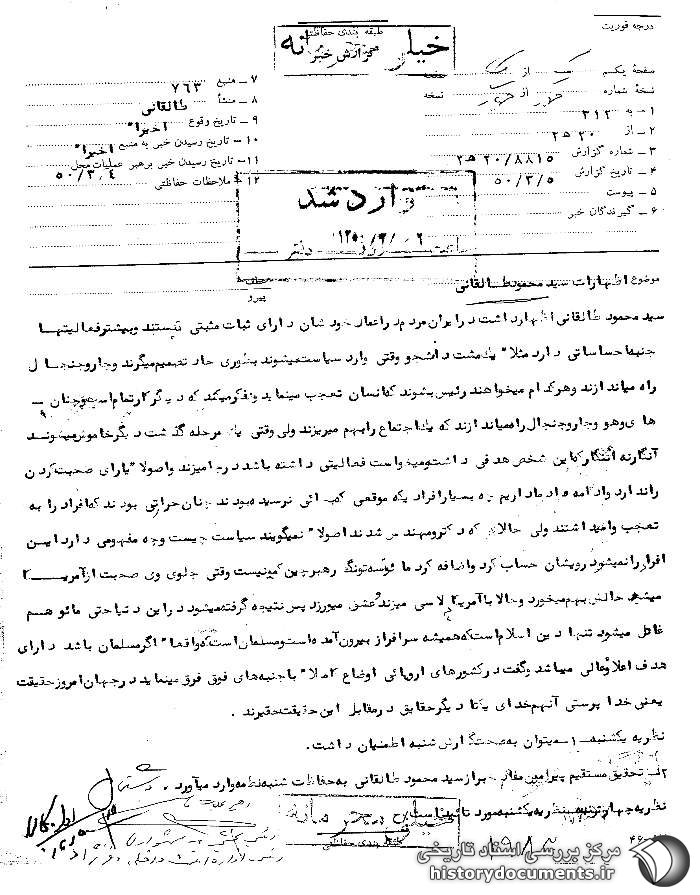 درجه فوریت
طبقه بندی حفاظتی
خیلی محرمانه
گزارش خبر
صفحه یکم از صفحه
نسخه شماره از نسخه
۱ – به ۳۱۲
۲ – از ۲۰ ﻫ ۲
۳ – شماره گزارش ۲۰/۸۸۱۵ ﻫ ۲
۴ – تاریخ گزارش ۵۰/۳/۵
۵ – پیوست
۶ – گیرندگان خبر
۷ – منبع ۷۶۳
۸ – منشأ طالقانی
۹ – تاریخ وقوع اخیرا"
۱۰ – تاریخ رسیدن خبر به منبع اخیرا"
۱۱ – تاریخ رسیدن خبر برهبر عملیات محل ۵۰/۳/۴
۱۲ – ملاحظات حفاظتی
وارد شد
موضوع اظهارات سید محمود طالقانی
پیرو
سید محمود طالقانی اظهارداشت در ایران مردم در اعمال خودشان دارای ثبات مثبتی نیستند و بیشتر فعالیتها
جنبه احساساتی دارد مثلا" یکمشت دانشجو وقتی وارد سیاست میشوند بطوری حاد تصمیم میگیرند و جاروجنجال
راه میاندازند و هرکدام میخواهند رئیس بشوند که انسان تعجب مینماید و فکر میکند که دیگر کار تمام است و چنان –
های و هو و جاروجنجال راه میاندازند که یک اجتماع را بهم میریزند ولی وقتی یک مرحله گذشت دیگر خاموش میشوند
آنگار نه انگار که این شخص هدفی داشت و میخواست فعالیتی داشته باشد در میروند و اصولا" یارای صحبت کردن
را ندارد و ادامه داد ما داریم چه بسیار افراد یکه موقعی که بجائی نرسیده بودند چنان حراتی بودند که افراد را به
تعجب وامیداشتند ولی حالا که دکتر و مهندس شدند اصولا" نمیگویند سیاست چیست و چه مفهومی دارد این
افراد را نمیشود رویشان حساب کرد و اضافه کرد مائوتسه تونگ رهبر چین کمونیست وقتی جلوی وی صحبت از آمریکا
میشد حالش بهم میخورد و حالا با آمریکا لاسی میزند و عشق میورزد پس نتیجه گرفته میشود در این دنیا حتی مائو هم
غافل میشود تنها دین اسلام است که همیشه سرافراز بیرون آمده است و مسلمان است که واقعا" اگر مسلمان باشد دارای
هدف اعلا و عالی میباشد و گفت در کشورهای اروپائی اوضاع کاملا" با جنبه‌های فوق فرق مینماید در جهان امروز حقیقت
یعنی خدا پرستی آنهم خدای یکتا دیگر حقایق در مقابل این حقیقت حقیرند .
نظریه یکشنبه – ۱ – میتوان به صحت گزارش شنبه اطمینان داشت .
۲ – تحقیق مستقیم پیرامون مفاد خبر از سید محمود طالقانی به حفاظت شنبه لطمه وارد میآورد .
نظریه چهارشنبه نظریه یکشنبه مورد تائید است
خیلی محرمانه
طبقه بندی حفاظتی
مرکز بررسی اسناد تاریخی
historydocuments.ir